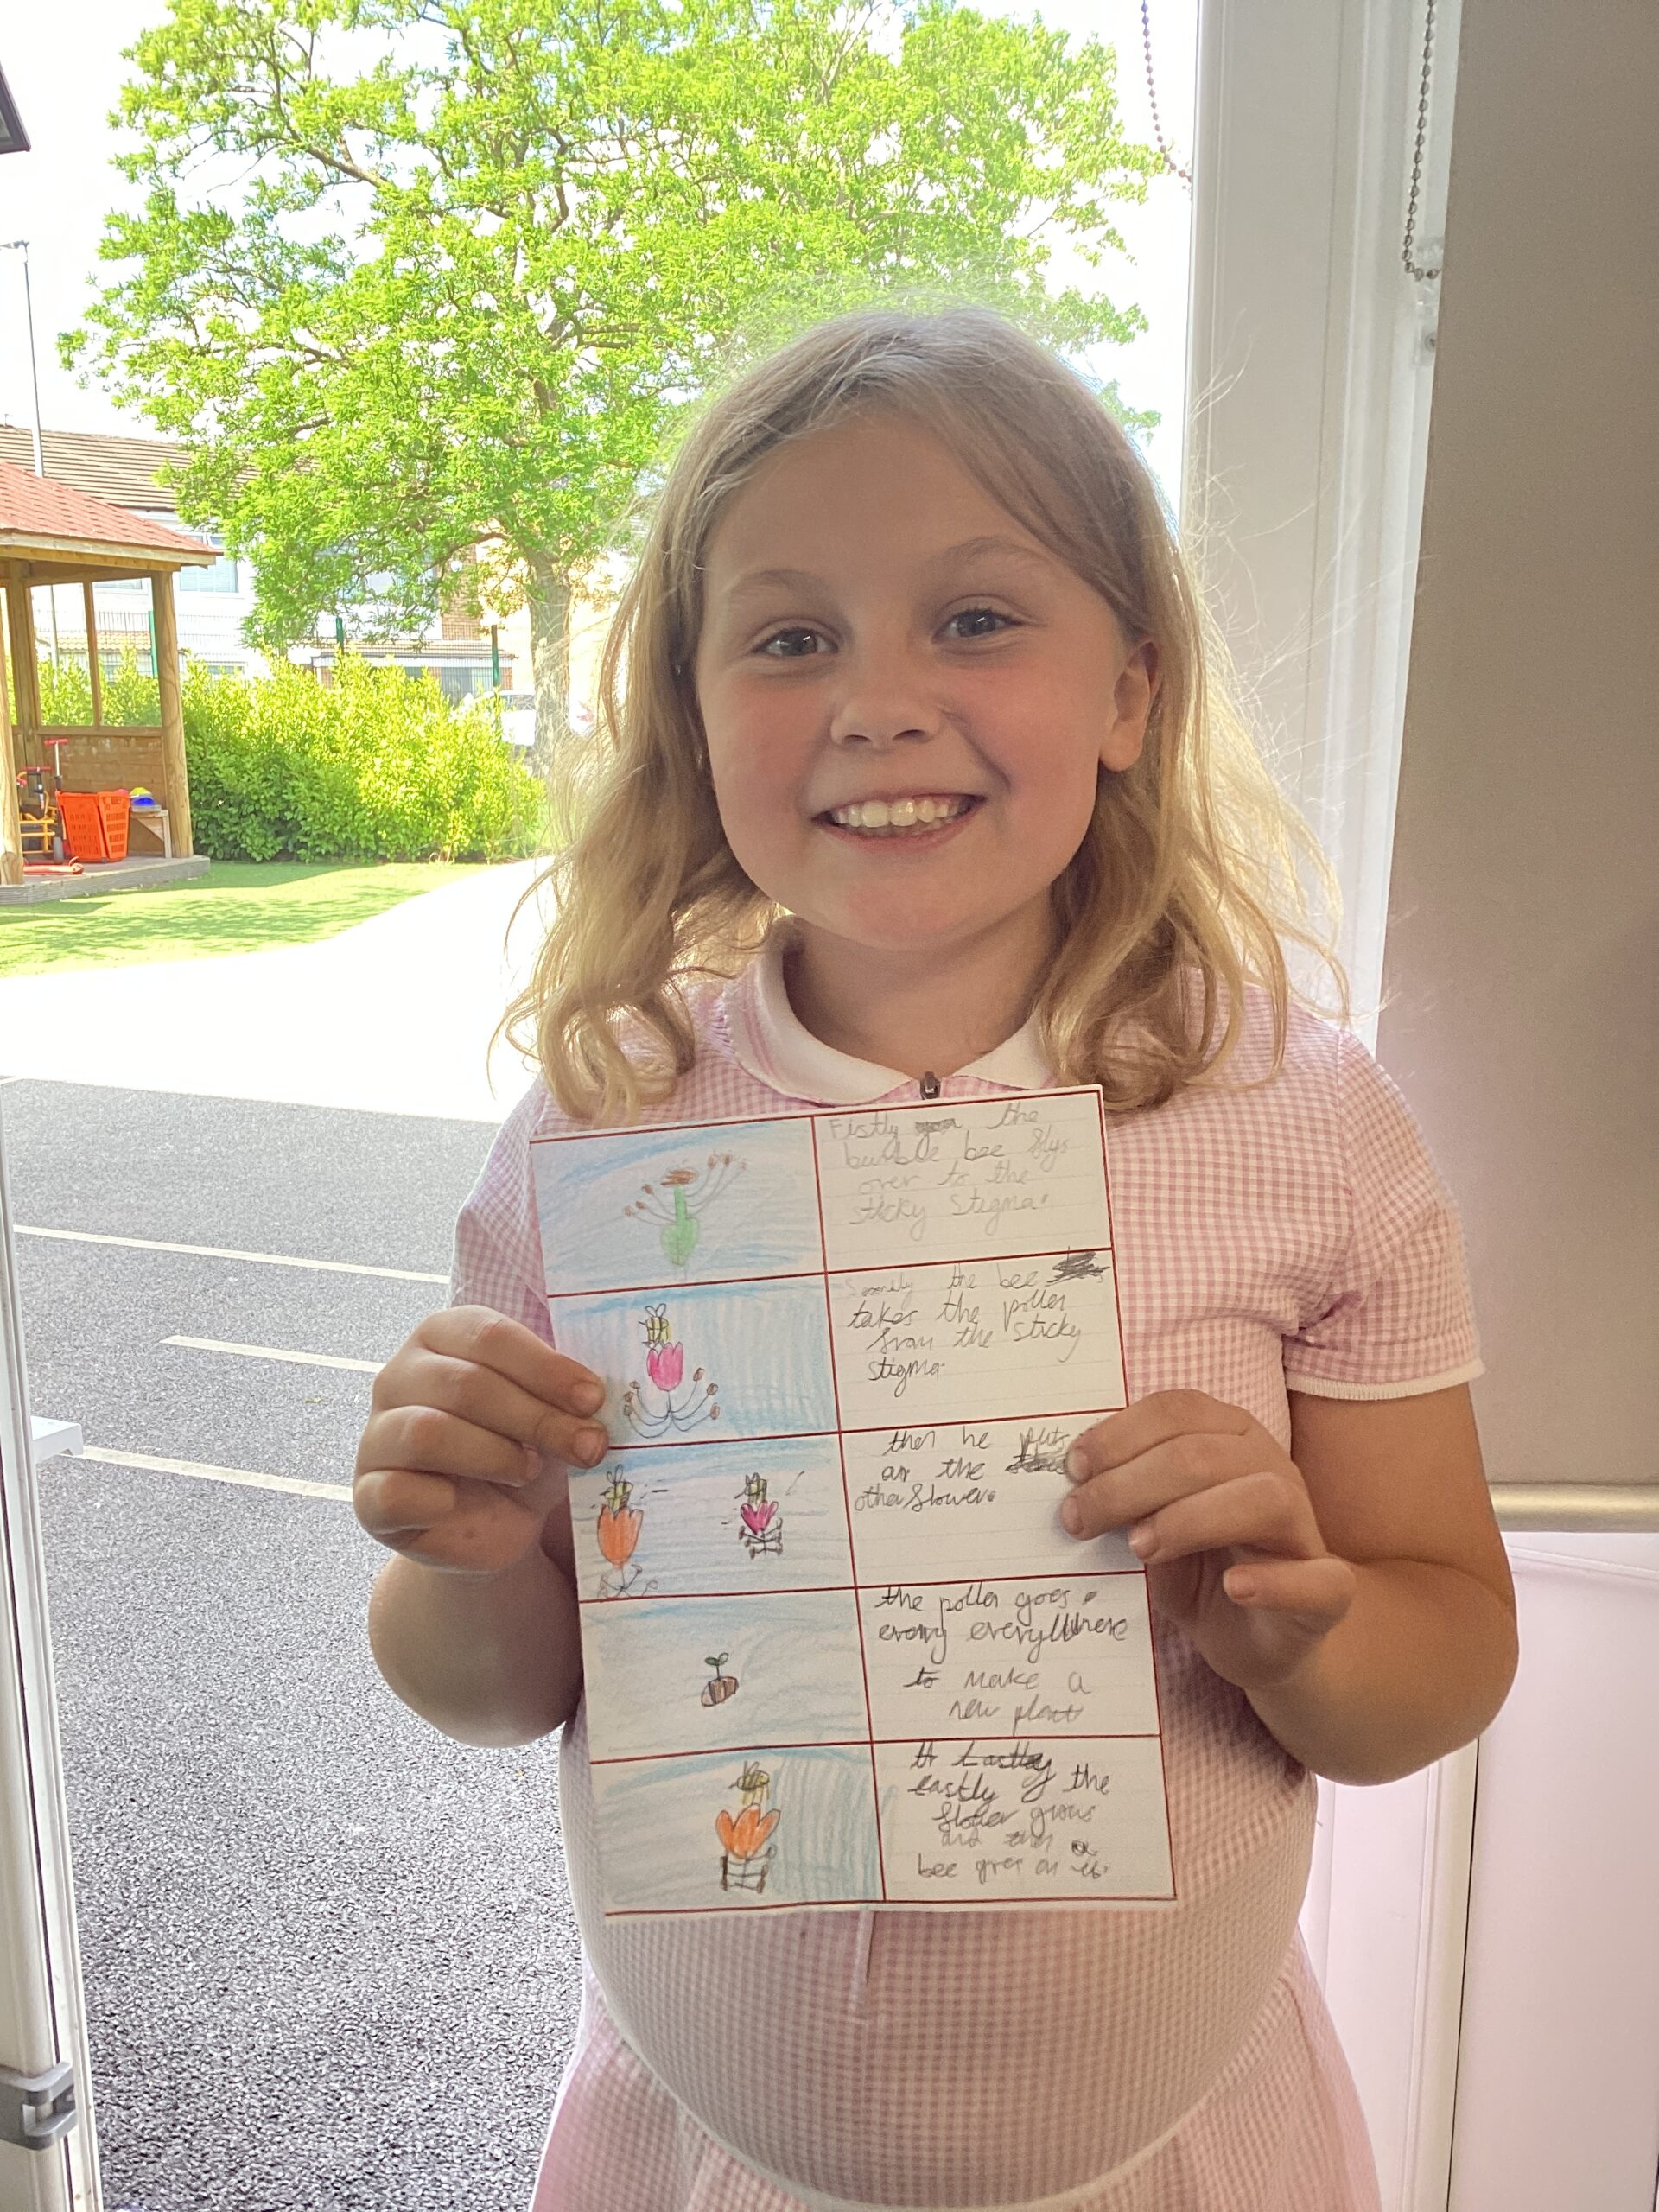 Fistly the
bumble bee flys
over to the
sticky stigma.
the bee
takes the pollen
from the sticky
stigma.
then he puts
on the
other flower.
the pollen goes
every everywhere
to make a
new plant
Lastly
Lastly the
flower grows
and then a
bee goes on it.